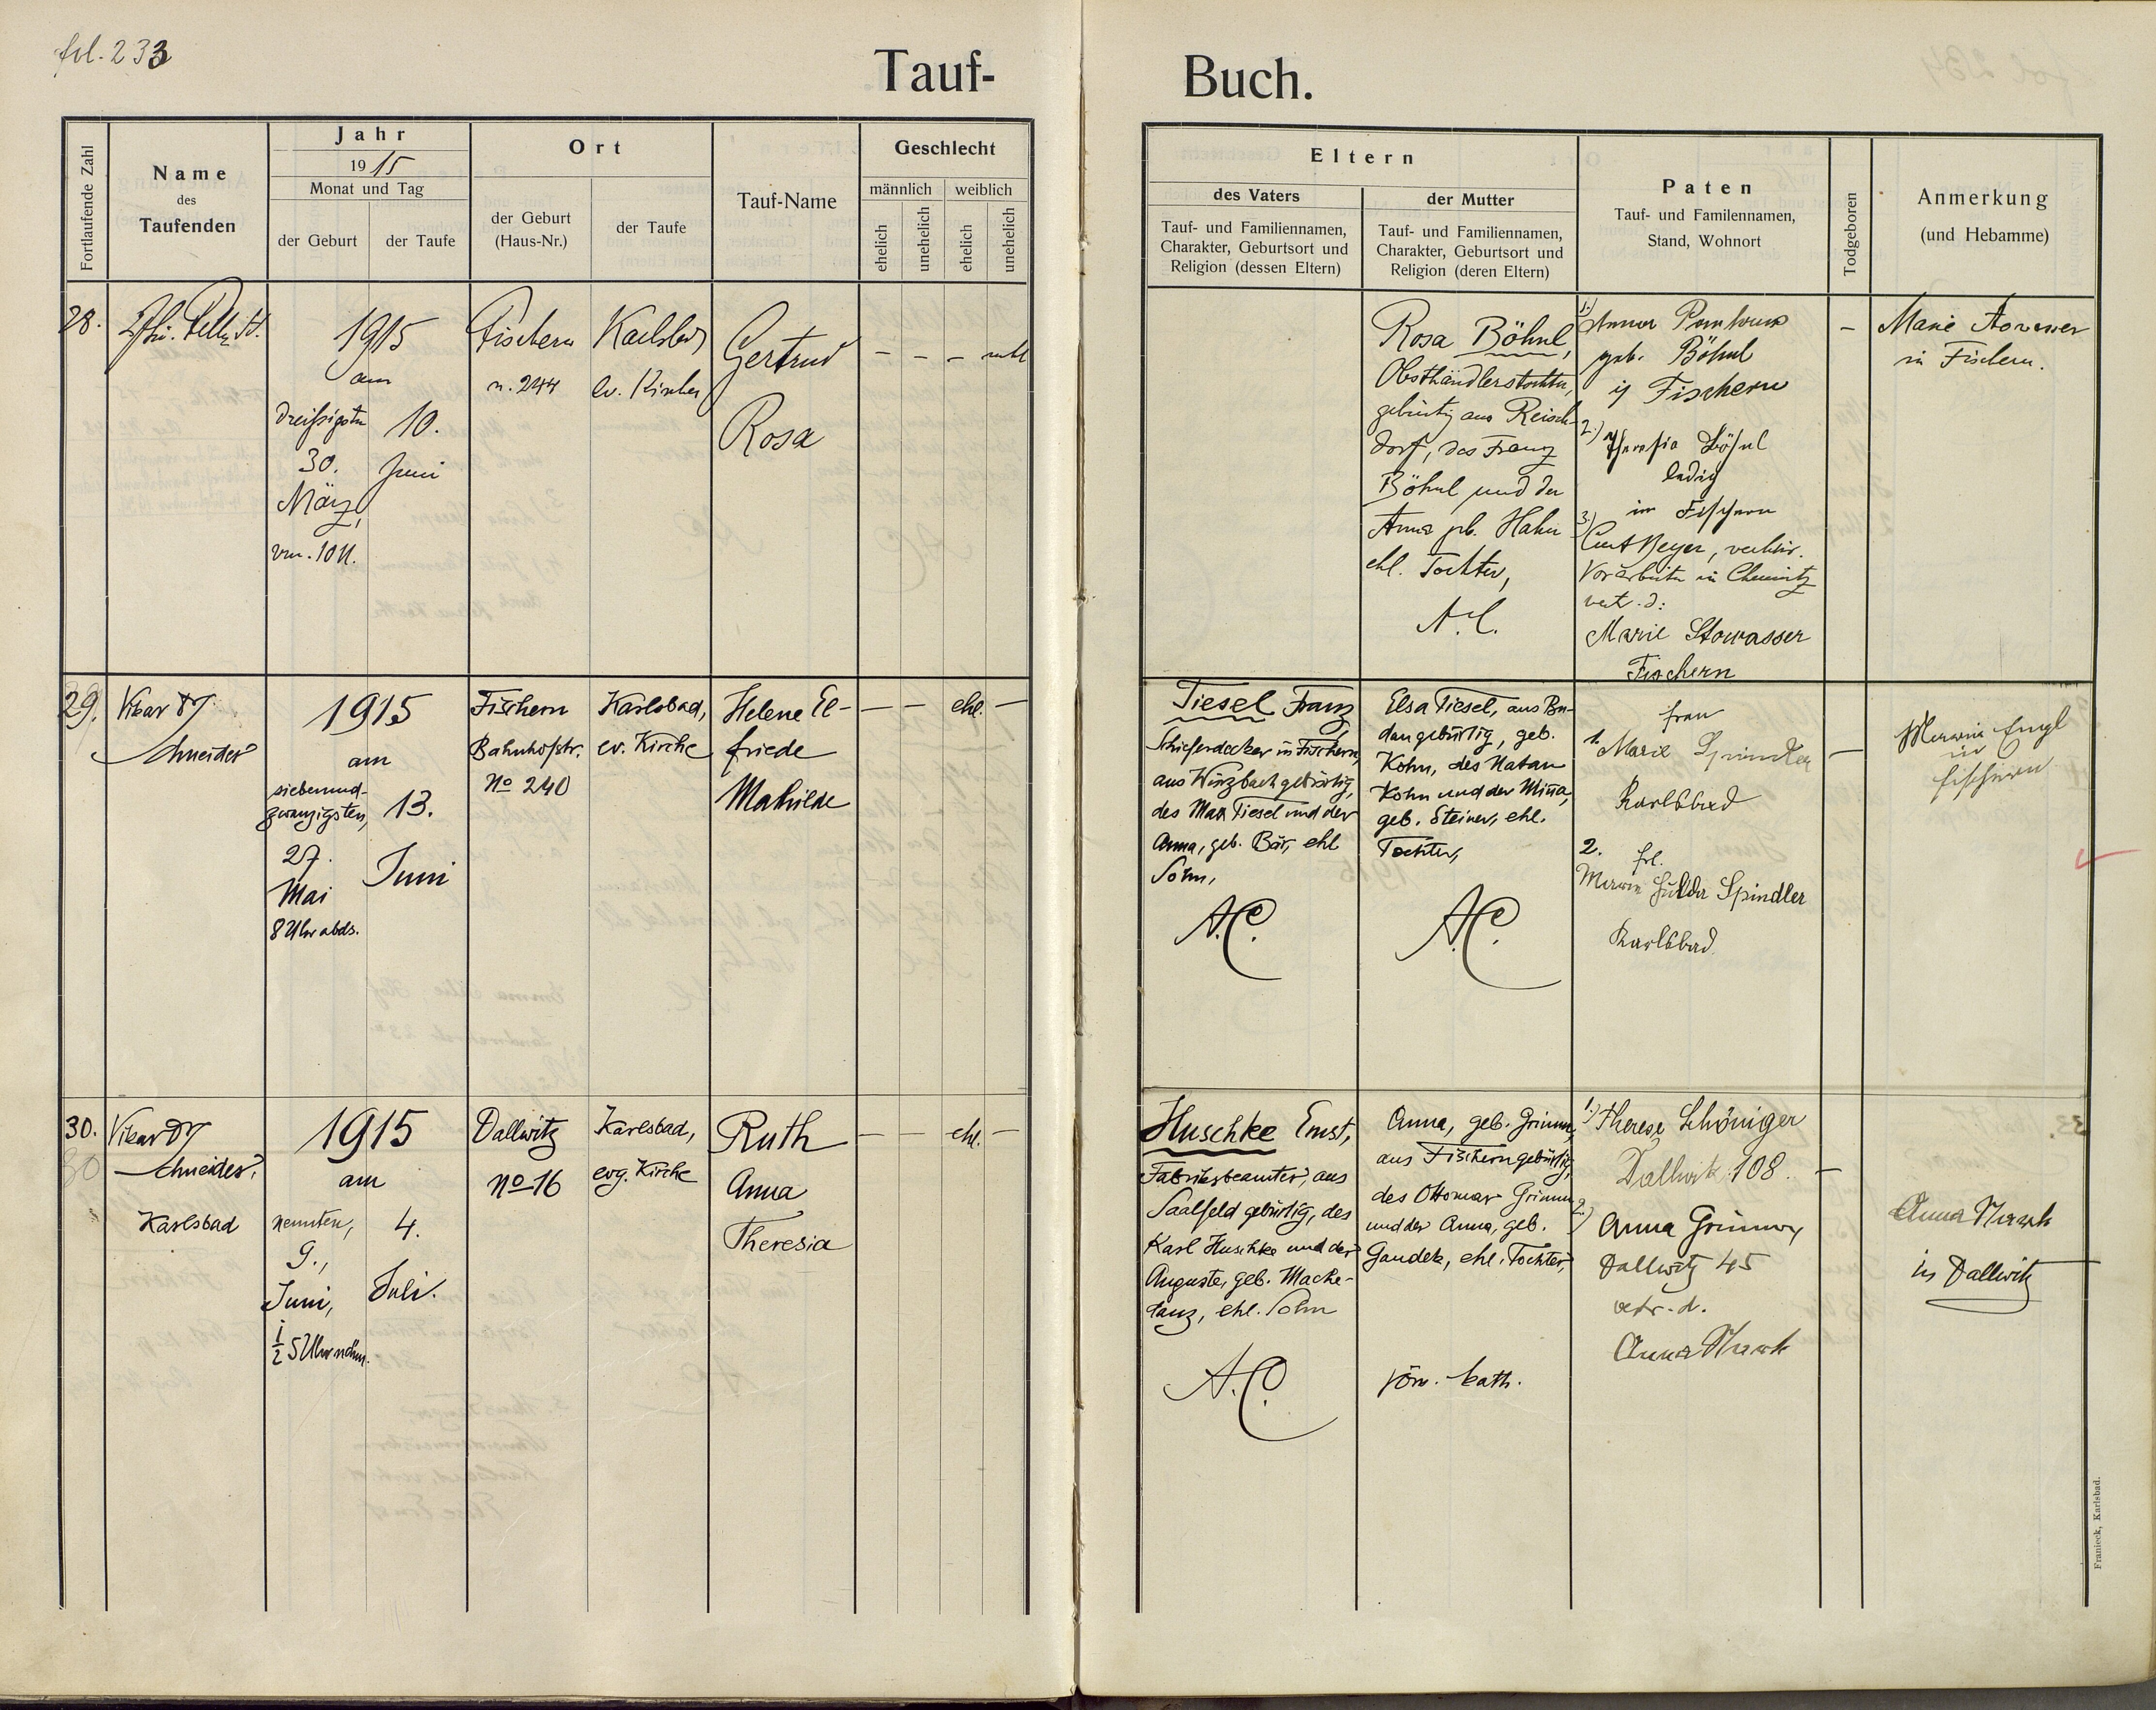 fol. 233
Tauf-
Buch.
Fortlaufende Zahl
Name
des
Taufenden
Jahr
1915
Monat und Tag
der Geburt
der Taufe
Ort
der Geburt
(Haus-Nr.)
der Taufe
Tauf-Name
Geschlecht
männlich
weiblich
ehelich
unehelich
ehelich
unehelich
Eltern
des Vaters
Tauf- und Familiennamen,
Charakter, Geburtsort und
Religion (dessen Eltern)
der Mutter
Tauf- und Familiennamen,
Charakter, Geburtsort und
Religion (deren Eltern)
Paten
Tauf- und Familennamen,
Stand, Wohnort
Todgeboren
Anmerkung
(und Hebamme)
28.
1915
am
dreißigsten
30.
März,
vm. 10 U.
10.
Juni
Fischern
n. 244
Karlsbad
ev. Kirche
Gertrud
Rosa
– – –
Rosa Böhnl,
Obsthändlerstochter,
gebürtig aus Reisch-
dorf, des Franz
Böhnl und der
Anna geb. Hahn
ehl. Tochter,
A.C.
1.) Anna
geb. Böhnl
in Fischern
2.) Theresia Böhnl
ledig
in Fischern
3.) Curt Beyer, verheir.
Vorarbeiter in Chemnitz
vert. d:
Marie Stowasser
Fischern
–
Marie
in Fischern.
29.
Vikar
Schneider
1915
am
siebenund-
zwanzigsten,
27.
Mai
8 Uhr abds.
13.
Juni
Fischern
Bahnhofstr.
No 240
Karlsbad,
ev. Kirche
Helene El-
friede
Mathilde
– – ehl. –
Tiesel Franz,
Schieferdecker in Fischern,
aus Wurzbach gebürtig,
des Max Tiesel und der
Anna, geb. Bär, ehl
Sohn,
A.C.
Elsa Tiesel, aus Bu-
dan gebürtig, geb.
Kohn, des Natan
Kohn und der Mina,
geb. Steiner, ehl.
Tochter,
A.C.
Frau
1. Marie Spindler
Karlsbad
2. Frl.
Marie Hulda Spindler
Karlsbad
–
Marie Engl
in
Fischern
30.
30
Vikar
Schneider,
Karlsbad
1915
am
neunten,
9.,
Juni,
1/2 5 Uhr nchm.
4.
Juli.
Dallwitz
No 16
Karlsbad,
evg. Kirche
Ruth
Anna
Theresia
– – ehl. –
Huschke Ernst,
Fabriksbeamter, aus
Saalfeld gebürtig, des
Karl Huschke und der
Auguste, geb. Macke-
tanz, ehl. Sohn
A.C.
Anna, geb. Grimm,
aus Fischern gebürtig,
des Ottomar Grimm
und der Anna, geb.
Gandek, ehl. Tochter,
röm. kath.
1.) Therese Schöniger
Dallwitz 108.
2.) Anna Grimm,
Dallwitz 45
vertr. d.
Anna
–
Anna
in Dallwitz
Franieck, Karlsbad.